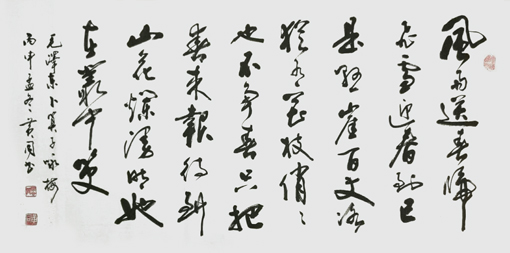 風雨送春歸
飛雪迎春到已
是懸崖百丈冰
猶有花枝俏〻
也不爭春只把
春来報待到
山花爛漫時她
在叢中笑
毛澤東卜算子咏梅
丙申孟冬黄